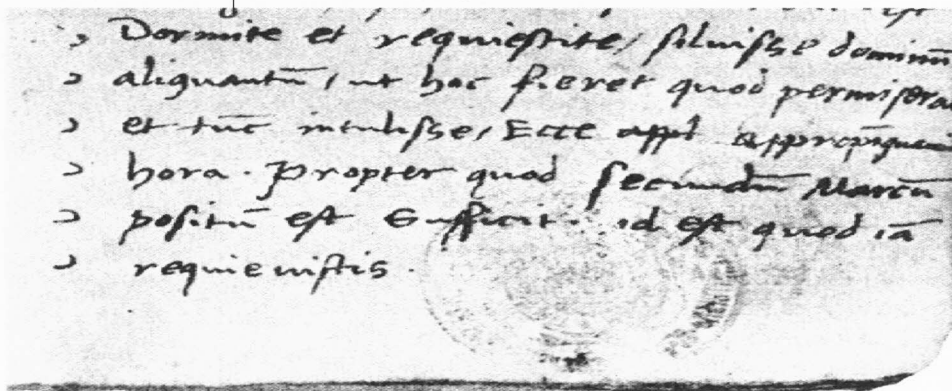 Dormite et requiescite, siluisse dominũ
aliquantũ, ut hoc fieret quod permisera
et tũc intulisse, Ecce appropĩquau
hora. Propter quod secundũ Marcũ
positũ est Sufficit. id est quod iã
requievistis.